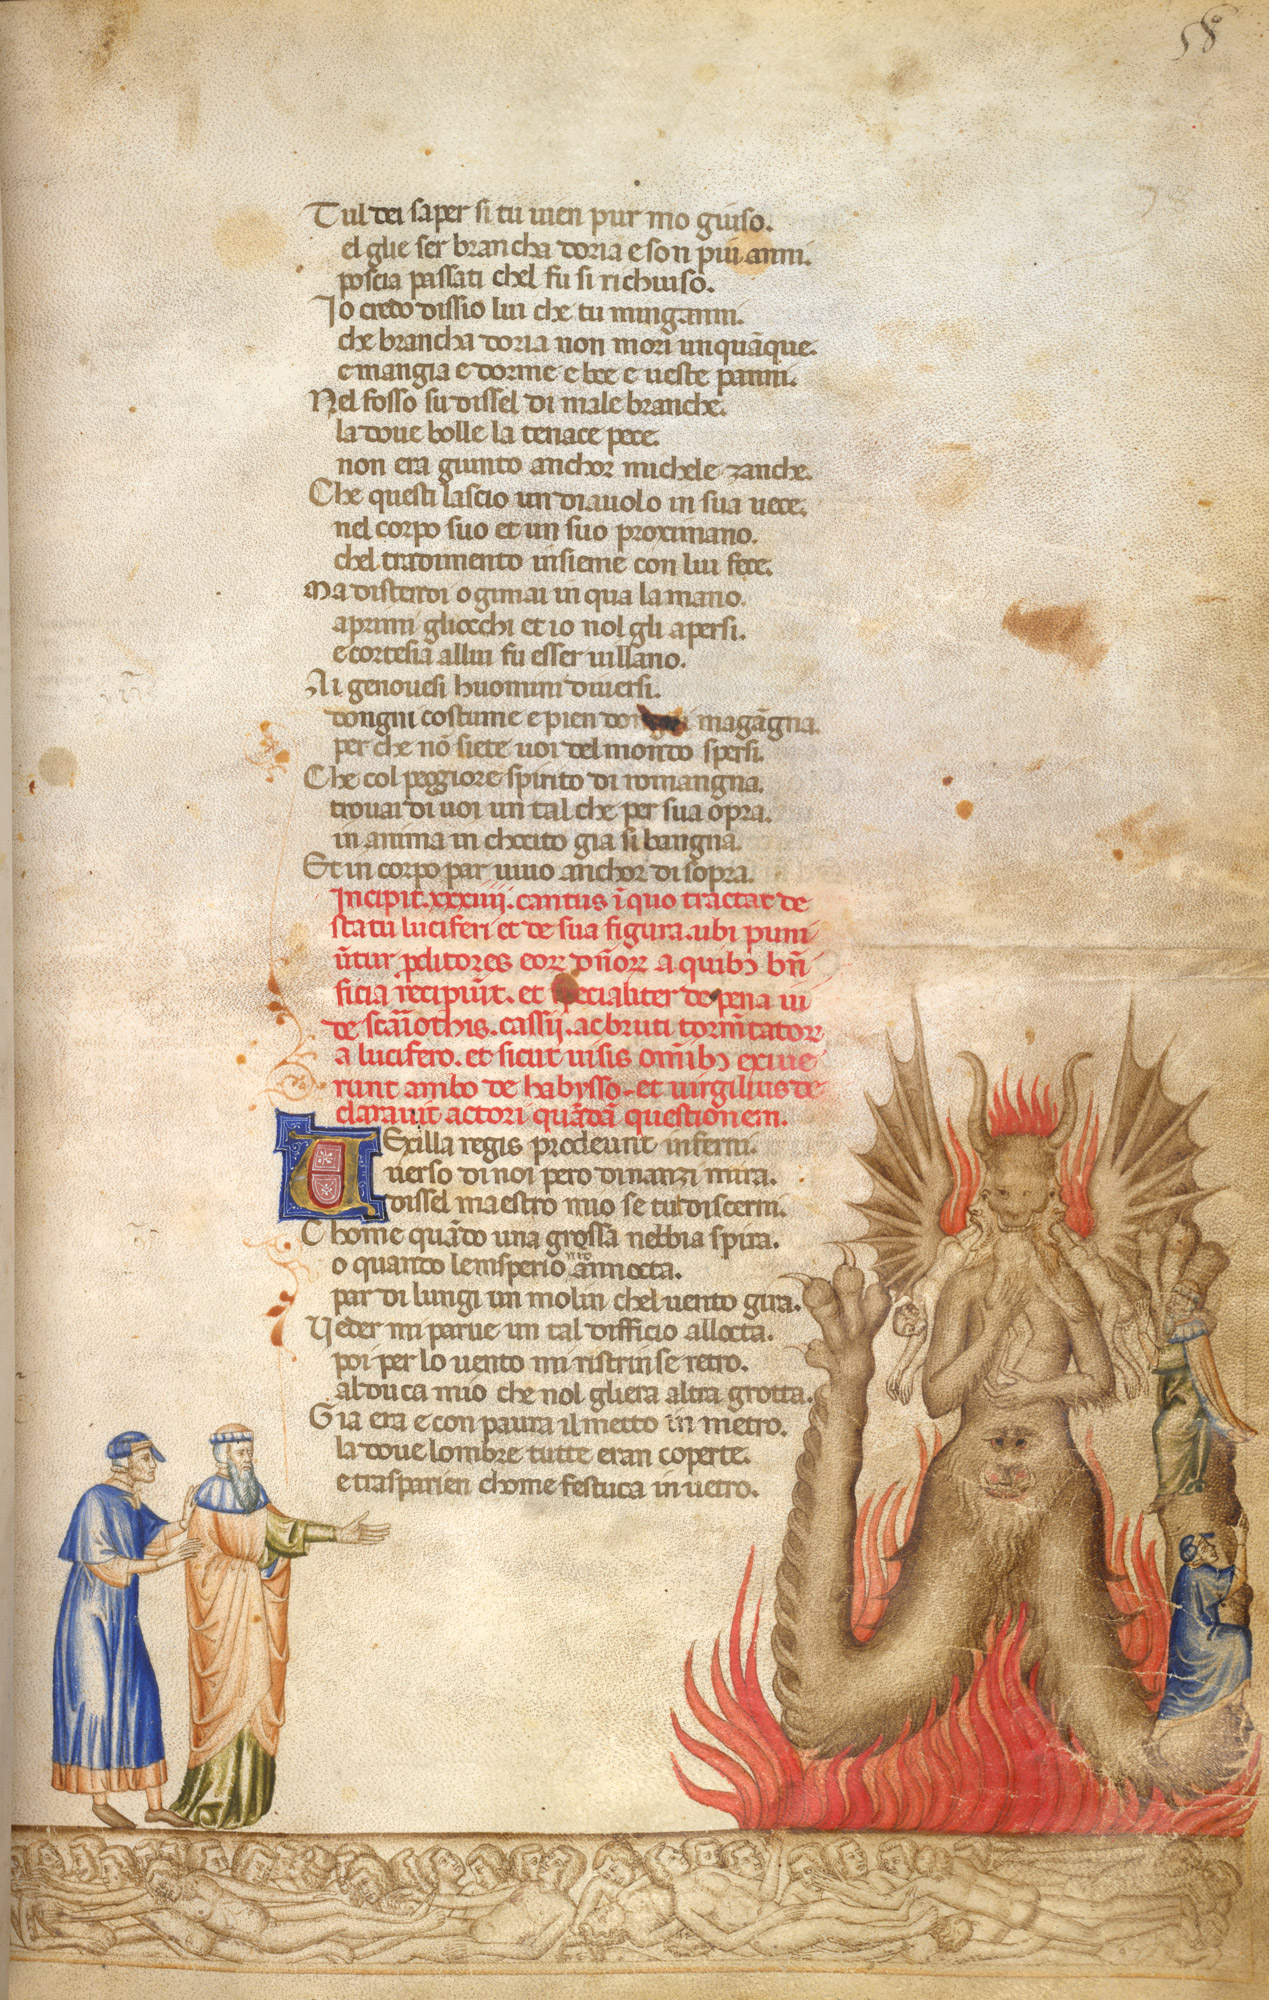 58
Tul dei saper si tu uien pur mo giuso.
el glie ser brancha doria e son piu anni.
poscia passati chel fu si richiuso.
Io credo dissio lui che tu minganni.
che brancha doria non mori unquāque.
e mangia e dorme e bee e ueste panni.
Nel fosso su dissel di male branche.
la doue bolle la tenace pece.
non era giunto anchor michele zanche.
Che questi lascio un diauolo in sua uece.
nel corpo suo et un suo proximano.
chel tradimento insieme con lui fece.
Ma distendi ogimai in qua la mano.
aprimi gliocchi et io nol gli apersi.
e cortesia allui fu esser uillano.
Ai genouesi huomini diuersi.
dongni costume e pien magāgna.
per che nō siete uoi del mondo spersi.
Che col peggiore spirito di romangna.
trouai di uoi un tal che per sua opra.
in anima in chocito gia si bangna.
Et in corpo par uiuo anchor di sopra.
Incipit .xxxiiii. cantus ī quo tractat de
statu luciferi et de sua figura. ubi puni
ūtur pditores eoꝝ dñoꝝ a quibꝫ bñ
ficia recipiūt. et specialiter de pena iu
de scariothis. cassii. ac bruti tormētatoꝝ
a lucifero. et sicut uisis omībꝫ exiue
runt ambo de habysso. et uirgilius de
clarauit actori quādā questionem.
Uexilla regis prodeunt inferni.
uerso di noi pero dinanzi mira.
dissel maestro mio se tul discerni.
Chome quādo una grossa nebbia spira.
o quando lemisperio nrō annocta.
par di lungi un molin chel uento gira.
Ueder mi parue un tal difficio allocta.
poi per lo uento mi ristrinse retro.
al duca mio che nol gliera altra grotta.
Gia era e con paura il metto in metro.
la doue lombre tutte eran coperte.
e trasparien chome festuca in uetro.